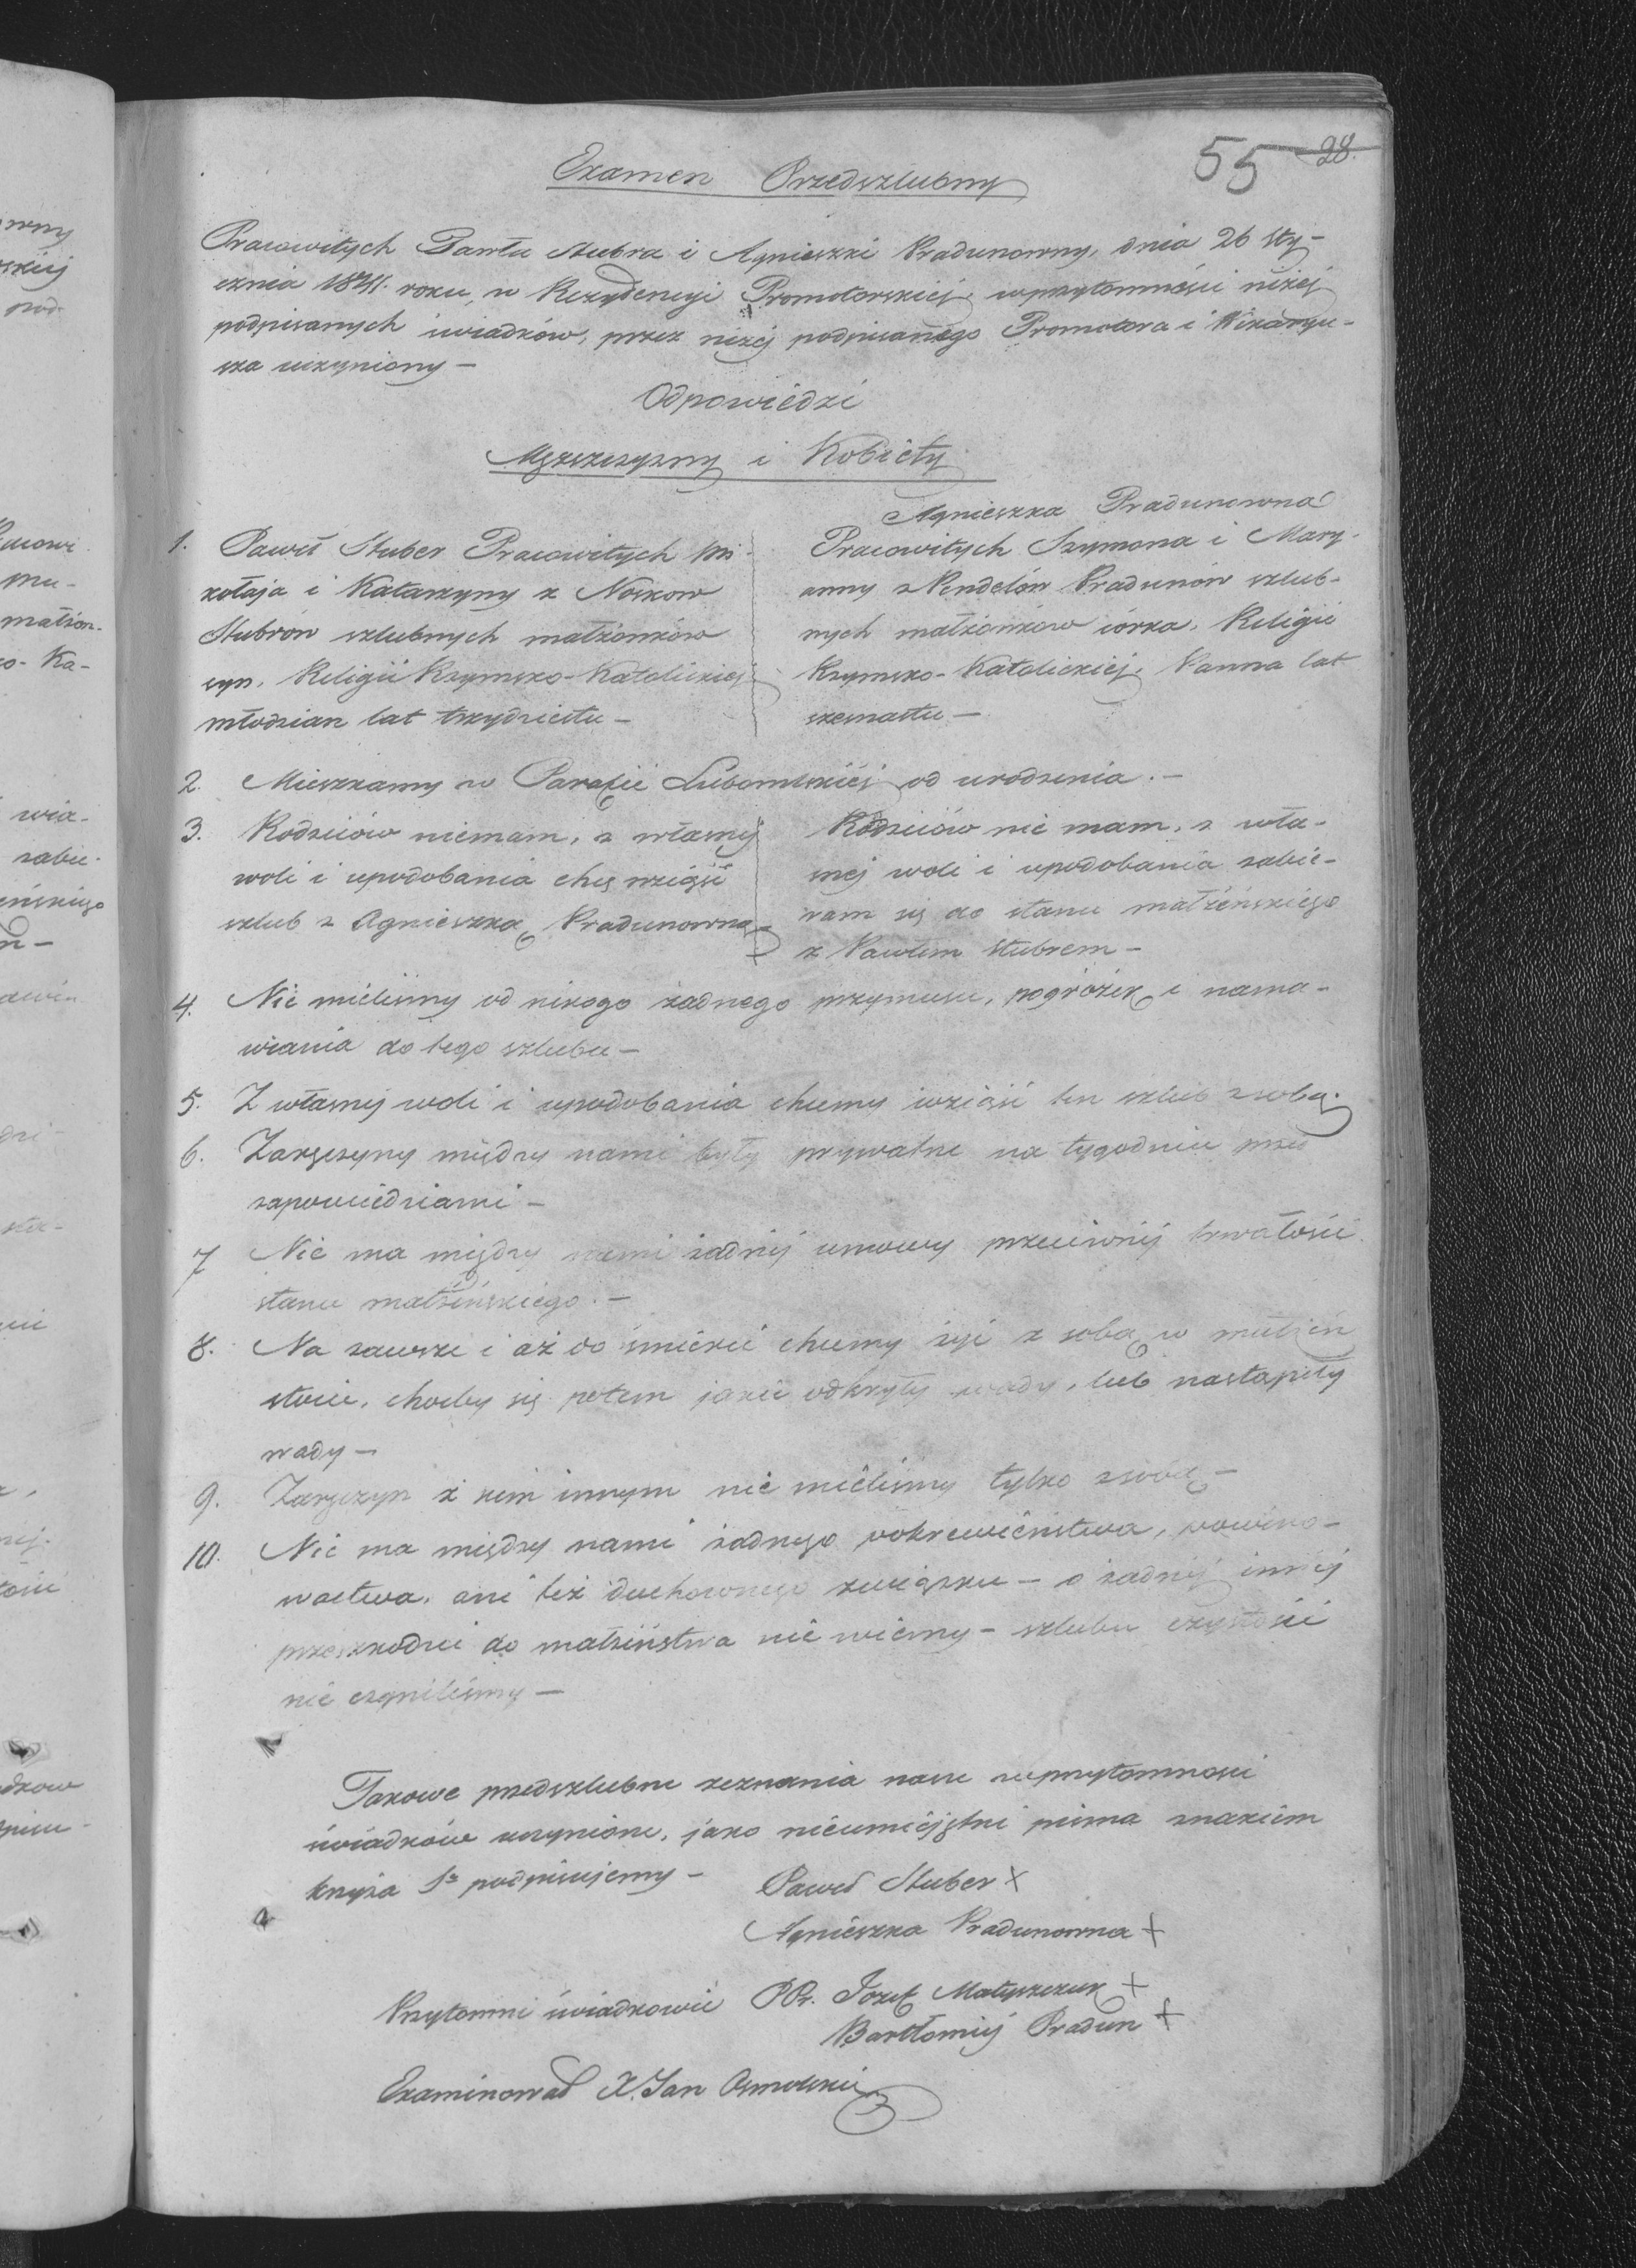 55 28.
Examen Przedszlubny
Pracowitych Pawła Stubra i Agnieszki Pradunowny, dnia 26 Sty-
cznia 1841. roku, w Rezydencyi Promotorskiéj w przytomności niżéj
podpisanych świadków, przez niżéj podpisanego Promotora i Wikaryu-
sza uczyniony —
Odpowiedzi
Męższczyzny i Kobiéty
1. Paweł Stuber Pracowitych Mi-
kołaja i Katarzyny z Nosków
Stubrów szlubnych małżonków
syn, Religii Rzymsko-Katolickiéj
młodzian lat trzydziestu —
Agnieszka Pradunowna
Pracowitych Szymona i Mary-
anny z Pendelów Pradunów szlub-
nych małżonków córka, Religii
Rzymsko-Katolickiéj, Panna lat
szesnastu —
2. Mieszkamy w Parafii Lubomlskiéj od urodzenia. —
3. Rodziców niemam, z własnéj
woli i upodobania chcę wziąść
szlub z Agnieszką Pradunowną
Rodziców nié mam, z wła-
snéj woli i upodobania zabié-
ram się do stanu małżéńskiégo
z Pawłem Stubrem —
4. Nié miéliśmy od nikogo żadnego przymusu, pogróżek i nama-
wiania do tego szlubu —
5. Z własnéj woli i upodobania chcemy wziąść ten szlub z sobą.
6. Zaręczyny między nami były prywatne na tygodniu przed
zapowiédziami —
7 Nié ma między nami żadnéj umowy przeciwnéj trwałości
stanu małżéńskiégo. —
8. Na zawsze i aż do śmiérci chcemy żyć z sobą w małżeń
stwie, choćby się potem jakié odkryły wady, lub nastąpiły
wady —
9. Zaręczyn z kim innym nié miéliśmy tylko z sobą —
10. Nié ma między nami żadnego pokrewiéństwa, powino-
wactwa, ani też duchownego związku — o żadnéj innéj
przeszkodzie do małżéństwa nié wiémy — szlubu czystości
nié czyniliśmy —
Takowe przedszlubne zeznania nasze w przytomności
świadków uczynione, jako niéumiéjętni pisma znakiém
krzyża Sgo podpisujemy —
Paweł Stuber X
Agniészka Pradunowna +
Przytomni świadkowié PPr. Jozef Matyszczuk +
Bartłomiéj Pradun +
Examinował X. Jan Osmolski